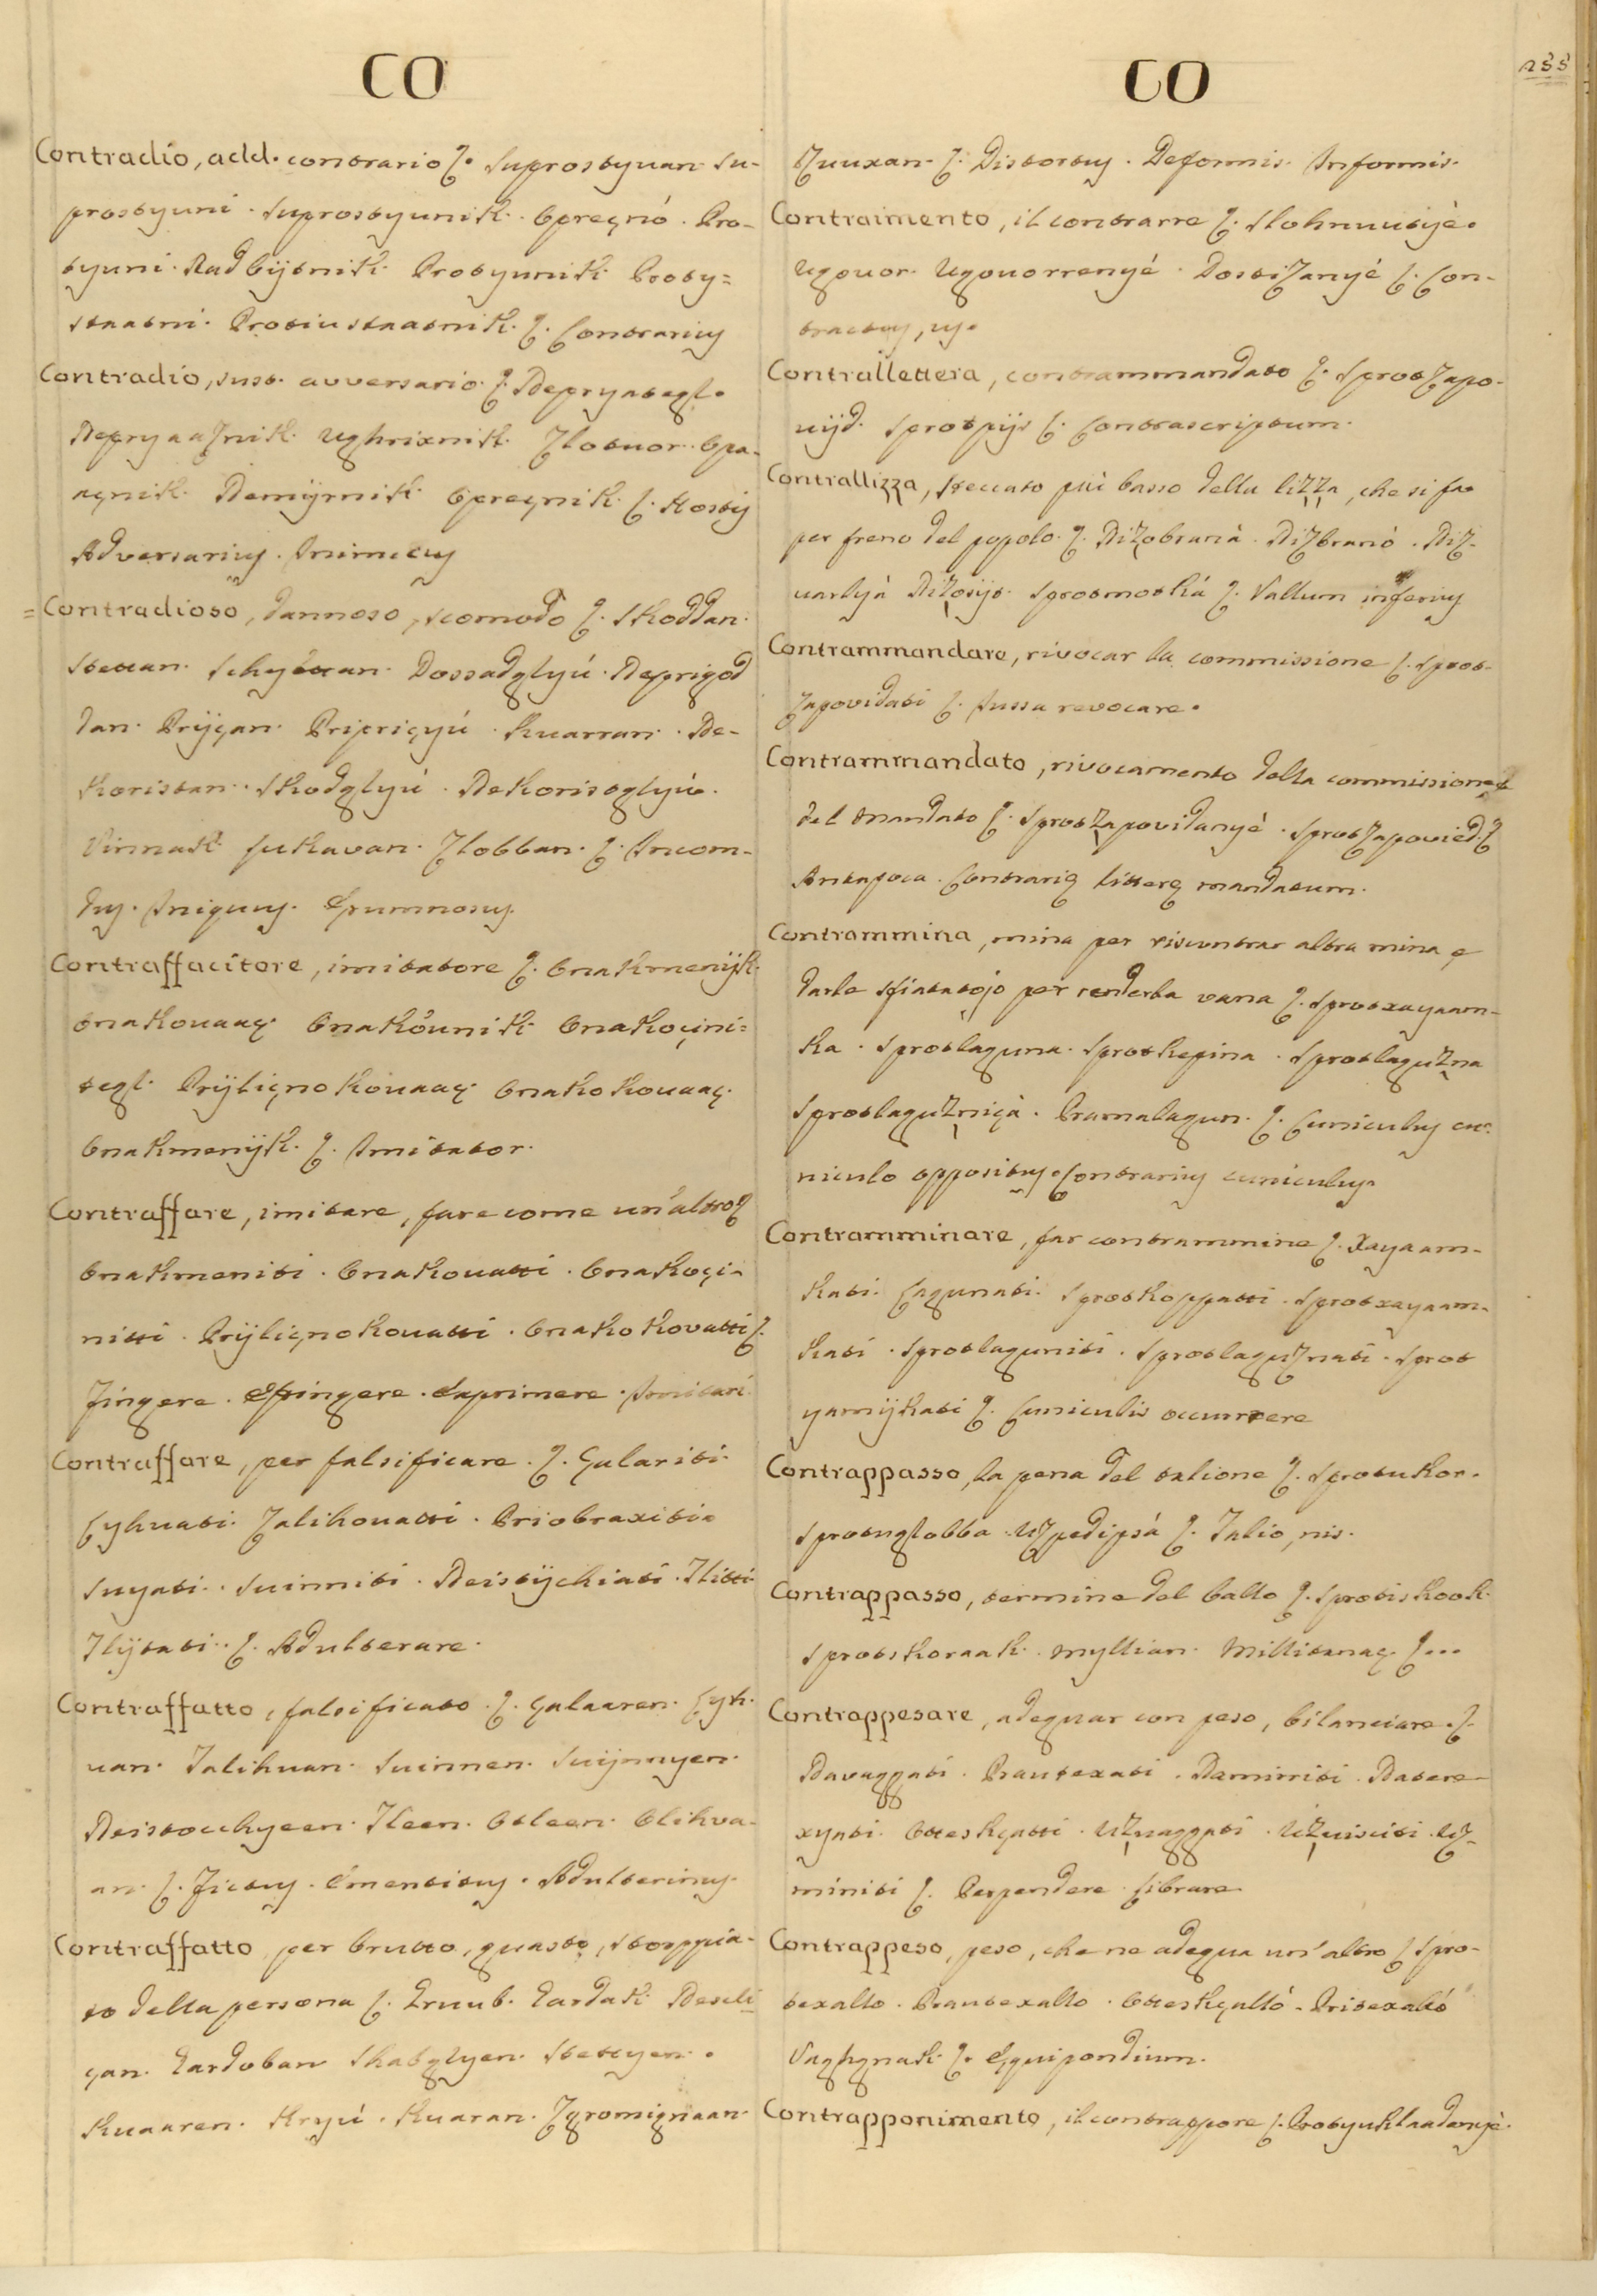 CO
Contradio, add. contrario ζ. Suprostyuan Su-
prostyuni. Suprostyunik. Opregnó. Pro-
tyuni. Nadbijtnik. Protyunik. Proty=
staatni. Protiustaatnik. ζ. Contrarius
Contradio, sust. avversario. ζ. Nepryategl.
Nepryaaznik. Ughrixnik. Zlotuor. Opa-
çnik. Nemijrnik. Opreçnik. ζ. Hostis
Adversarius. Inimicus
=Contradioso, dannoso, scomodo ζ. Skoddan.
Stettan. Dossadglyú. Neprigod
dan. Prijçan. Pripriçyú. Kuarran. Ne-
koristan. Skodglyú. Nekoristglyú.
Vinnak. Lukavan. Zlobban. ζ. Incom-
dus. Iniquus. Erumnosus.
Contraffacitore, imitatore ζ. Onakmenijk.
Onakouaaç. Onakóunik. Onakoçini=
tegl. Prijliçnokouaaç. Onakokouaaç.
Onakmenijk. ζ. Imitator.
Contraffare, imitare, fare come un'altro ζ
Onakmeniti. Onakouatti. Onakoçi-
nitti. Prijliçnokouatti. Onakokovatti ζ.
Fingere. Effingere. Exprimere. Imitari
Contraffare, per falsificare. ζ. Galariti.
Lyhuati. Zalihouatti. Priobraxiti.
Suyati. Suinniti. Neistijchiati. Tlitti.
Tlijtati. ζ. Adulterare.
Contraffatto, falsificato. ζ. Galaaren. Lyh.
uan. Zalihuan. Suinnen. Suijnnyen.
Neistocchyeen. Tleen. Otleen. Olihva-
an. ζ. Fictus. Ementitus. Adulterinus.
Contraffatto per brutto, guasto, storppia-
to della persona ζ. Gruub. Gardak. Neuli
çan. Gardoban Skatglyen. Stettyen.
Kuaaren. Kryú. Kuaran. Zgromignaan.
CO
233
Ruuxan. ζ. Distortus. Deformis. Informis.
Contraimento, il contrarre ζ. Slohnuutyé.
Ugouor. Ugouorrenyé. Dostizanyé ζ. Con-
tractus, us.
Contrallettera, contrammandato ζ. Sprotzapo-
uijd. Sprotpijs ζ. Contrascriptum.
Contrallizza, steccato più basso della lizza, che si fa
per freno del popolo. ζ. Nizobrania. Nizbranió. Niz-
uarhyà Sprotmotká ζ. Vallum inferius
Contrammandare, rivocar la commissione ζ. Sprot-
zapovidati ζ. Iussa revocare.
Contrammandato, rivocamento della commissione, e
del mandato ζ. Sprotzapovidanyé. Sprotzapovied. ζ
Antapoca. Contrariæ litteræ mandatum.
Contrammina, mina per riscontrar altra mina e
darle sfiatatojo per renderla vana ζ. Sprotxayaam-
ka. Sprotlaguna. Sprotkepina. Sprotlaguzna
Sprotlaguzniçà. Pramalagun. ζ. Cuniculus cu-
niculo oppositus. Contrarius cuniculus.
Contramminare, far contrammine ζ. Xayaam-
kati. Lagunati. Sprotkoppatti. Sprotxayaam-
kati. Sprotlaguniti. Sprotlaguznati. Sprot
yamijkati ζ. Cuniculis occurrere
Contrappasso, la pena del talione ζ. Sprotukor.
Sprotuzlobba. Uzpedipsá ζ. Talio, nis.
Contrappasso, termine del ballo ζ. Sprotiskook.
Sprotskoraak. Myllian. Millitanaç. ζ...
Contrappesare, adeguar con peso, bilanciare. ζ.
Navaggati. Prautexati. Namiriti. Natere-
xyati. Otteshçatti. Uzuaggati. Uzuisciti. Uz-
miniti ζ. Perpendere Librare
Contrappeso, peso, che ne adegua un'altro ζ Spro-
texallo. Prautexallo. Otteshçalló. Pritexalló
Vaghgnak. ζ. Æquipondium.
Contrapponimento, il contrappore ζ. Protyuklaadanyé.